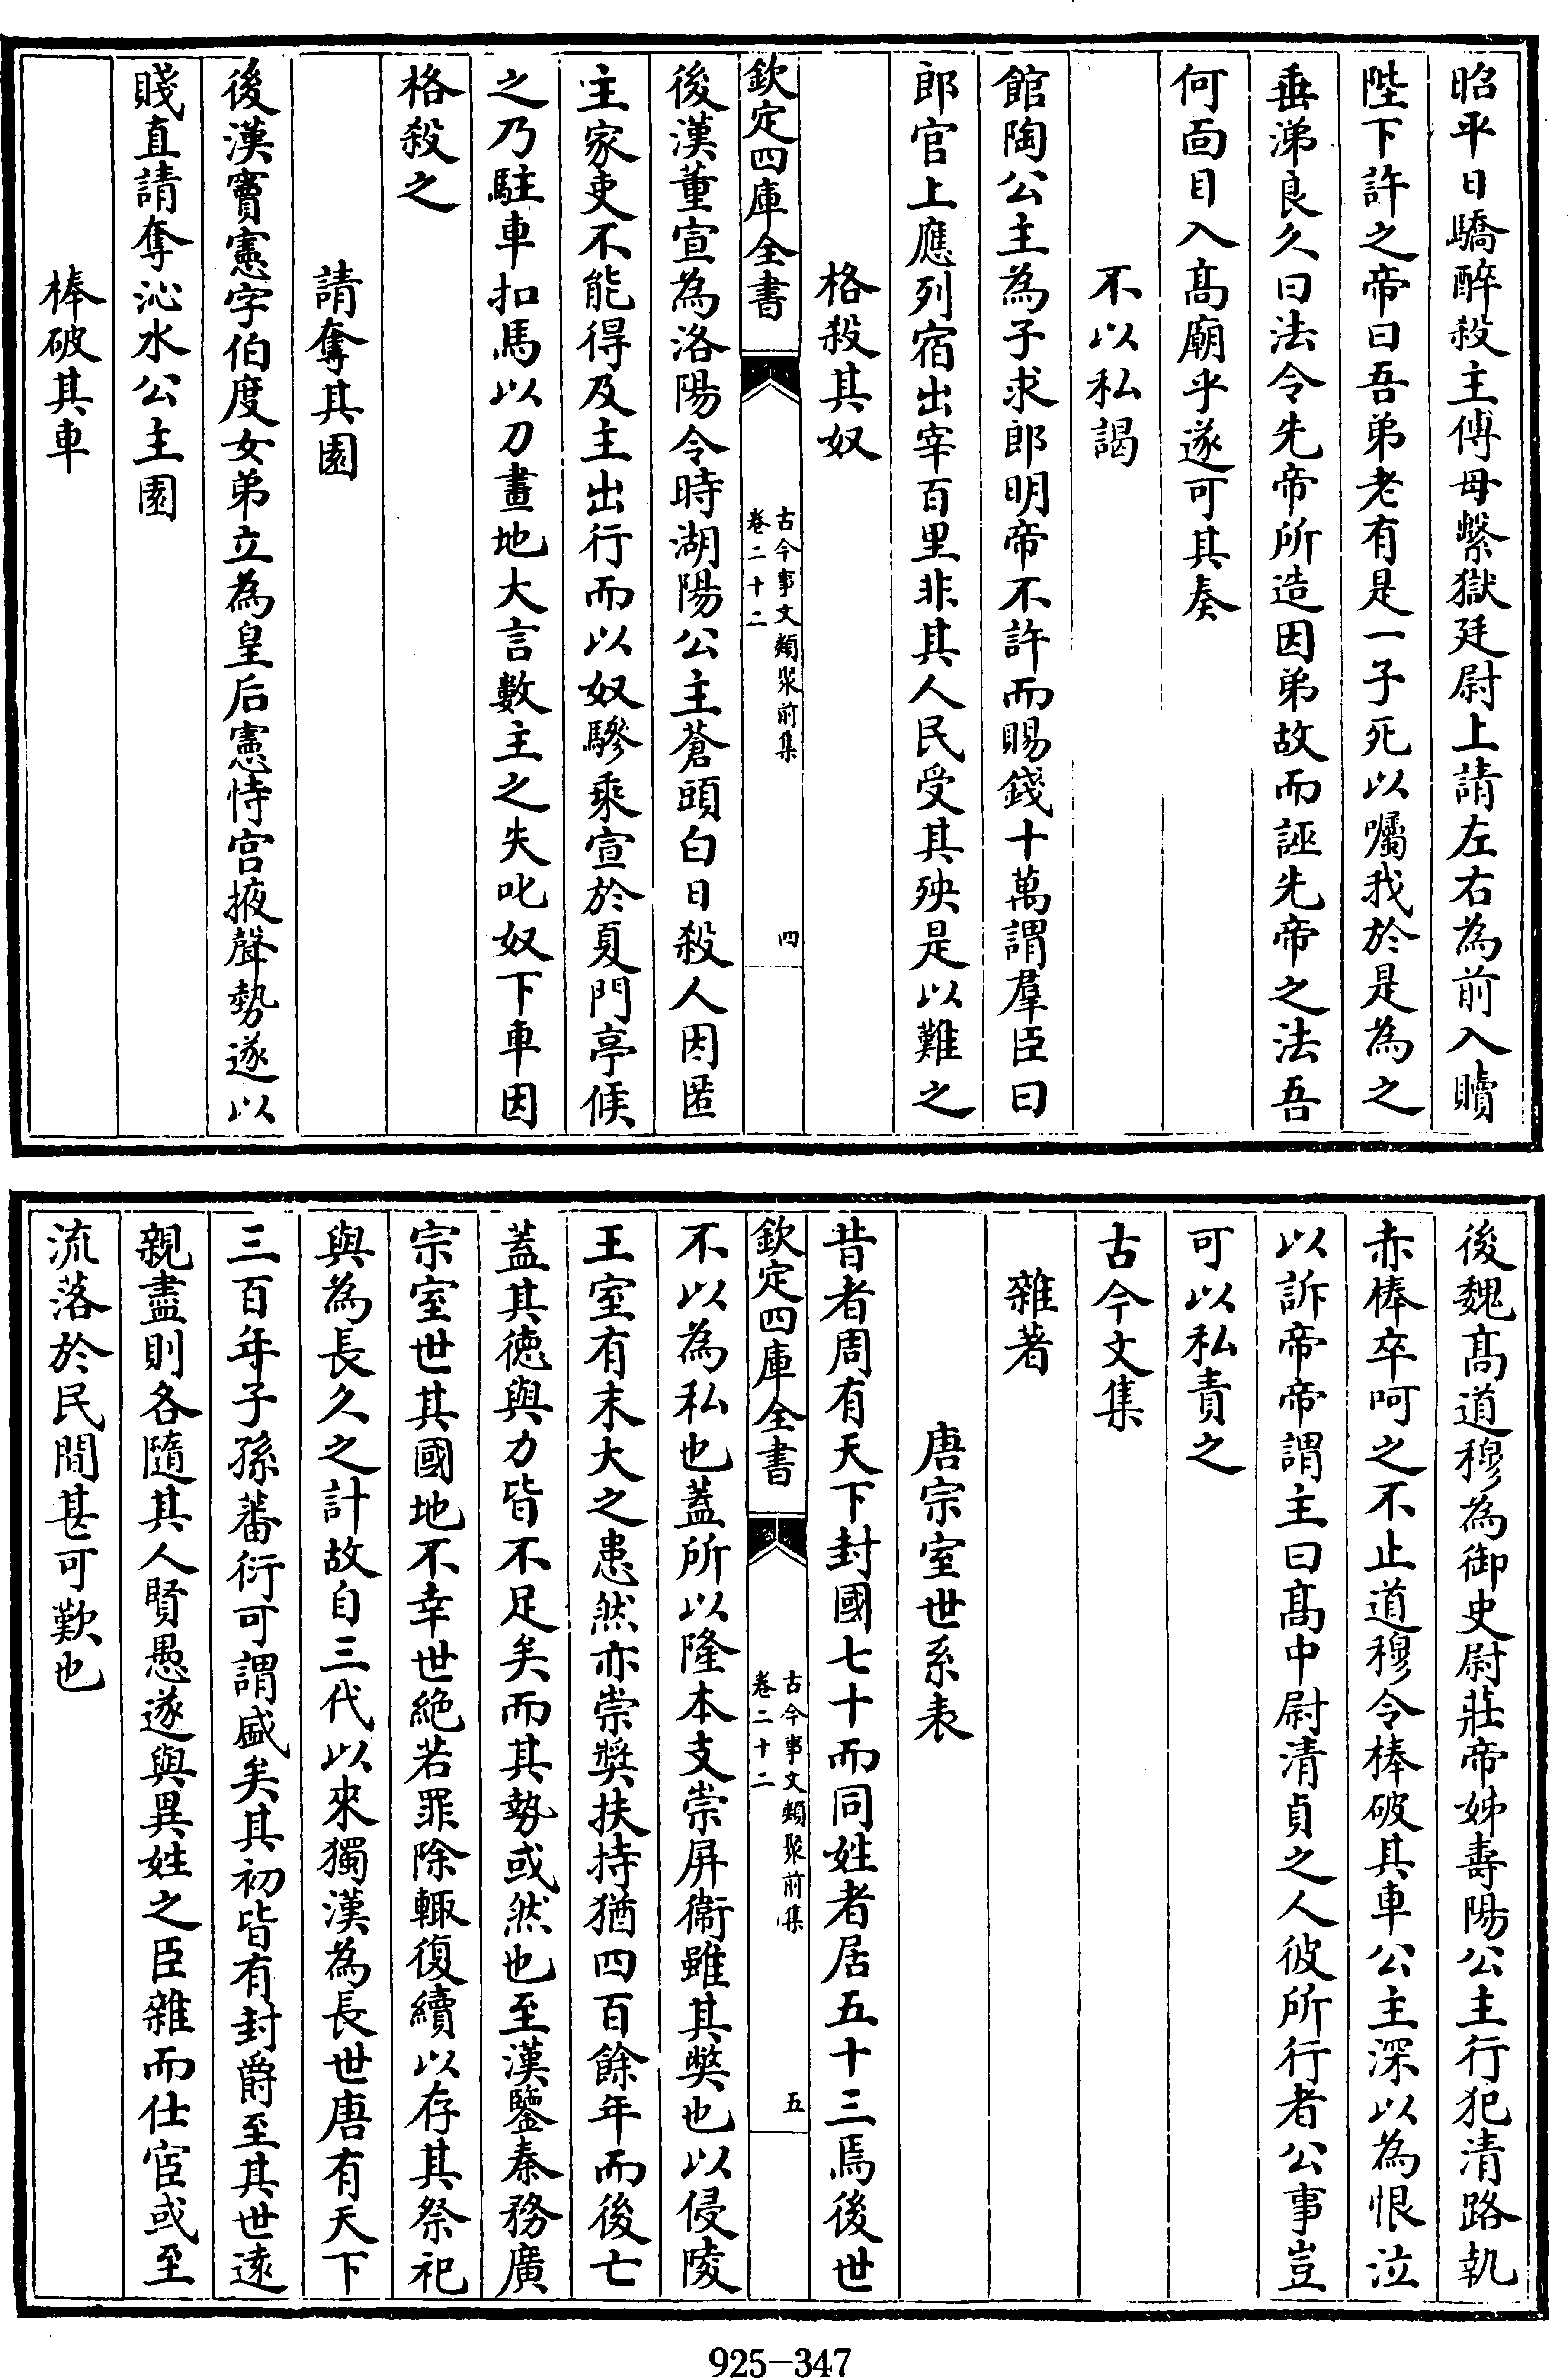 昭平日驕醉殺主傅母繫獄廷尉上請左右為前入贖
陛下許之帝曰吾弟老有是一子死以囑我於是為之
垂涕良久曰法令先帝所造因弟故而誣先帝之法吾
何面目入髙廟乎遂可其奏
不以私謁
館陶公主為子求郎明帝不許而賜錢十萬謂羣臣曰
郎官上應列宿出宰百里非其人民受其殃是以難之
格殺其奴
欽定四庫全書
古今事文類聚前集
卷二十二
四
後漢董宣為洛陽令時湖陽公主蒼頭白日殺人因匿
主家吏不能得及主出行而以奴驂乘宣於夏門亭候
之乃駐車扣馬以刀畫地大言數主之失叱奴下車因
格殺之
請奪其園
後漢竇憲字伯度女弟立為皇后憲恃宫掖聲勢遂以
賤直請奪沁水公主園
棒破其車
後魏髙道穆為御史尉莊帝姊壽陽公主行犯清路執
赤棒卒呵之不止道穆令棒破其車公主深以為恨泣
以訴帝帝謂主曰髙中尉清貞之人彼所行者公事豈
可以私責之
古今文集
雜著
唐宗室世系表
昔者周有天下封國七十而同姓者居五十三焉後世
欽定四庫全書
古今事文類聚前集
卷二十二
五
不以為私也蓋所以隆本支崇屏衞雖其弊也以侵陵
王室有末大之患然亦崇奬扶持猶四百餘年而後亡
蓋其徳與力皆不足矣而其勢或然也至漢鑒秦務廣
宗室世其國地不幸世絶若罪除輙復續以存其祭祀
與為長久之計故自三代以來獨漢為長世唐有天下
三百年子孫蕃衍可謂盛矣其初皆有封爵至其世逺
親盡則各隨其人賢愚遂與異姓之臣雜而仕宦或至
流落於民間甚可歎也
925-347